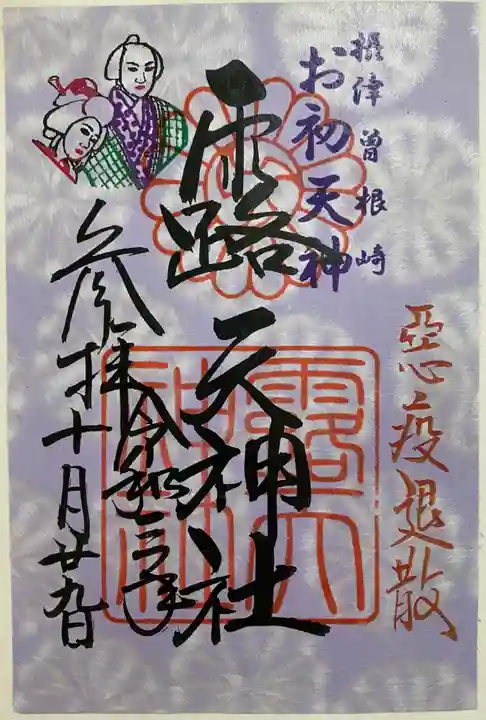 摂津 曽根崎
お初天神
悪疫退散
露天神社
令和三年
参拝 十月廿九日
露天神社